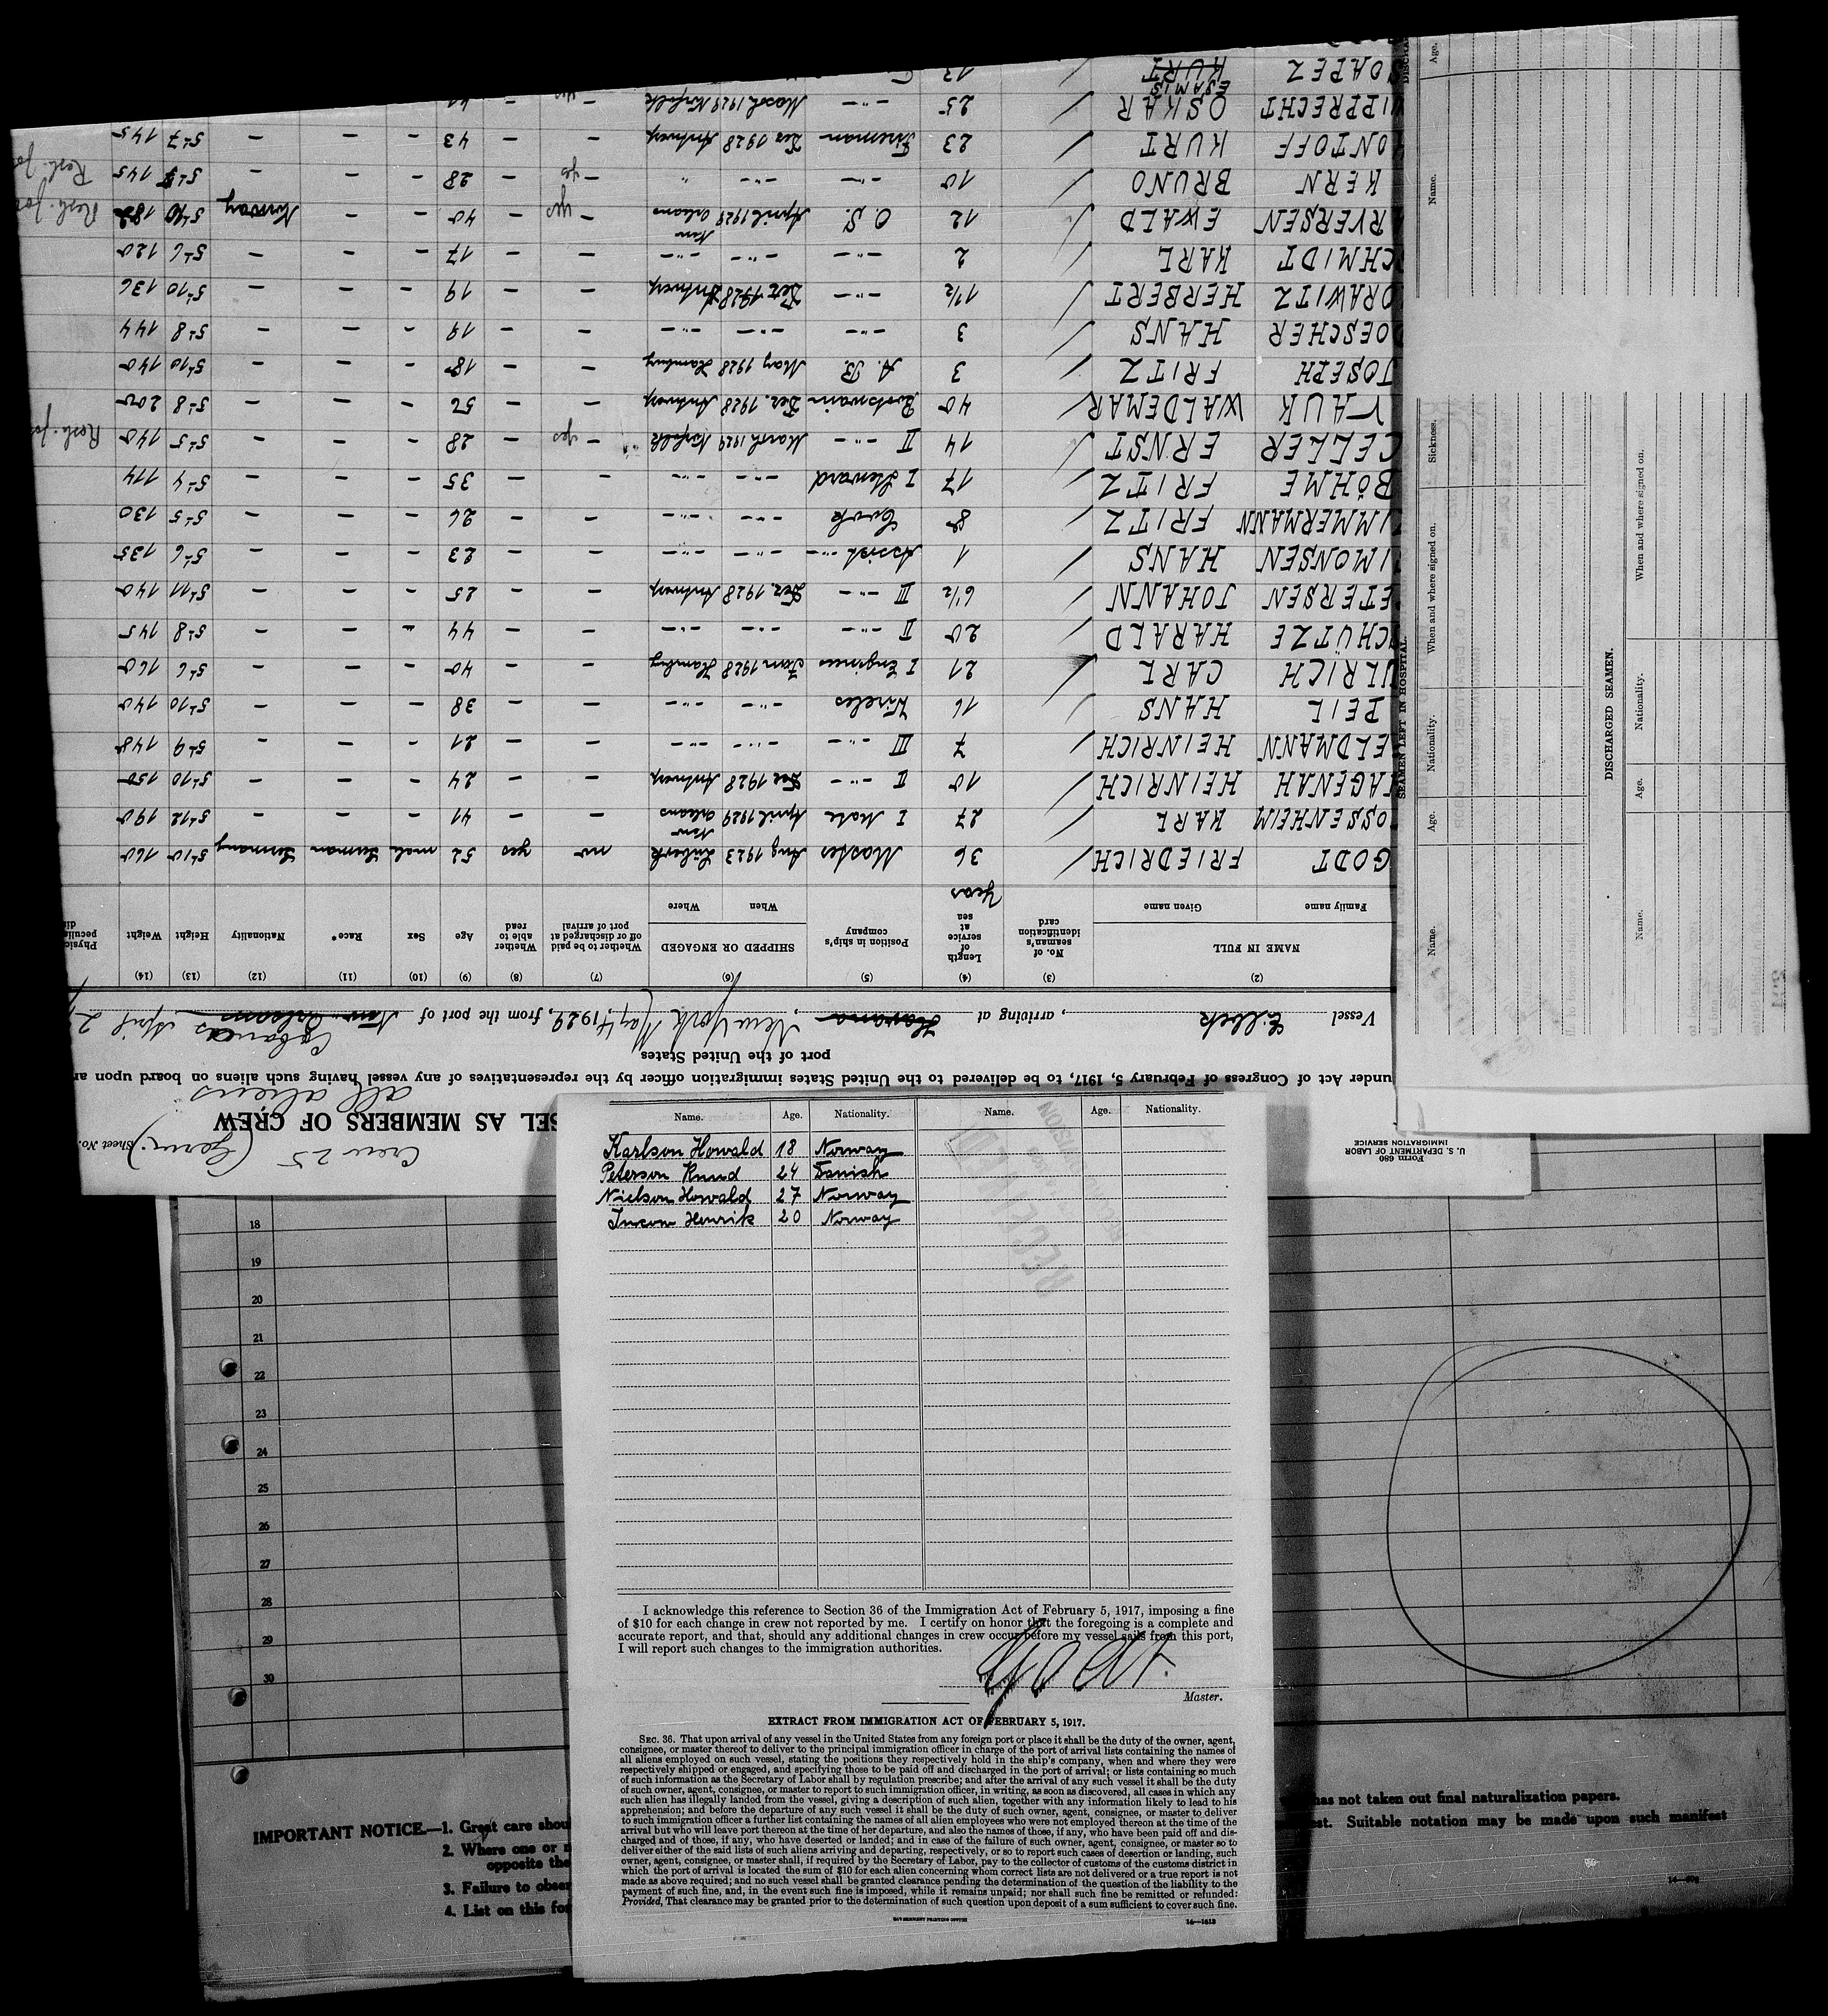 Name. Age. Nationality. Name. Age. Nationality.
Karlson Howald 18 Norway
Peterson Knud 24 Danish
Nielson Howald 27 Norway
Henrik 20 Norway
RECEIVED
I acknowledge this reference to Section 36 of the Immigration Act of February 5, 1917, imposing a fine
of $10 for each change in crew not reported by me. I certify on honor that the foregoing is a complete and
accurate report, and that, should any additional changes in crew occur before my vessel sails from this port,
I will report such changes to the immigration authorities.
Godt.
Master.
EXTRACT FROM IMMIGRATION ACT OF FEBRUARY 5, 1917.
SEC. 36. That upon arrival of any vessel in the United States from any foreign port or place it shall be the duty of the owner, agent,
consignee, or master thereof to deliver to the principal immigration officer in charge of the port of arrival lists containing the names of
all aliens employed on such vessel, stating the positions they respectively hold in the ship's company, when and where they were
respectively shipped or engaged, and specifying those to be paid off and discharged in the port of arrival; or lists containing so much
of such information as the Secretary of Labor shall by regulation prescribe; and after the arrival of any such vessel it shall be the duty
of such owner, agent, consignee, or master to report to such immigration officer, in writing, as soon as discovered, all cases in which any
such alien has illegally landed from the vessel, giving a description of such alien, together with any information likely to lead to his
apprehension; and before the departure of any such vessel it shall be the duty of such owner, agent, consignee, or master to deliver
to such immigration officer a further list containing the names of all alien employees who were not employed thereon at the time of the
arrival but who will leave port thereon at the time of her departure, and also the names of those, if any, who have been paid off and dis-
charged and of those, if any, who have deserted or landed; and in case of the failure of such owner, agent, consignee, or master so to
deliver either of the said lists of such aliens arriving and departing, respectively, or so to report such cases of desertion or landing, such
owner, agent, consignee, or master shall, if required by the Secretary of Labor, pay to the collector of customs of the customs district in
which the port of arrival is located the sum of $10 for each alien concerning whom correct lists are not delivered or a true report is not
made as above required; and no such vessel shall be granted clearance pending the determination of the question of the liability to the
payment of such fine, and, in the event such fine is imposed, while it remains unpaid; nor shall such fine be remitted or refunded:
Provided, That clearance may be granted prior to the determination of such question upon deposit of a sum sufficient to cover such fine.
GOVERNMENT PRINTING OFFICE 14—1813
Form 680
U. S. DEPARTMENT OF LABOR
IMMIGRATION SERVICE
Sheet No.
Crew 25 (Germ.)
SEL AS MEMBERS OF CREW
all aliens
under Act of Congress of February 5, 1917, to be delivered to the United States immigration officer by the representatives of any vessel having such aliens on board upon ar
port of the United States
Vessel Eilbek, arriving at Havana, New York May 4, 1929, from the port of New Orleans Cabanas April 2
(2) (3) (4) (5) (6) (7) (8) (9) (10) (11) (12) (13) (14)
NAME IN FULL
Family name Given name
No. of seaman's identification card
Length of service at sea
Years
Position in ship's company
SHIPPED OR ENGAGED
When Where
Whether to be paid off or discharged at port of arrival
Whether able to read
Age Sex Race* Nationality Height Weight
GODT FRIEDRICH 36 Master Aug 1923 Lübeck no yes 52 male German Germany 5-10 160
OSSENHEIM KARL 27 I Mate April 1929 New Orleans — — 41 — — — 5-12 190
AGENAH HEINRICH 10 II -"- Dez 1928 Antwerp — — 24 — — — 5-10 150
ELDMANN HEINRICH 7 III -"- -"- -"- — — 21 — — — 5-9 148
PEIL HANS 16 Wireles -"- -"- — — 38 — — — 5-10 140
ULRICH CARL 21 I Engineer Jan 1928 Hamburg — — 40 — — — 5-6 160
CHÜTZE HARALD 20 II -"- -"- -"- — — 44 — — — 5-8 145
ETERSEN JOHANN 6½ III -"- Dez. 1928 Antwerp — — 25 — — — 5-11 140
IMONSEN HANS 1 Assist. -"- -"- -"- — — 23 — — — 5-6 135
IMMERMANN FRITZ 8 Cook -"- -"- — — 26 — — — 5-5 130
BÖHME FRITZ 17 I Steward -"- -"- — — 35 — — — 5-4 114
CELLER ERNST 14 II -"- March 1929 Norfolk — yes — 28 — — — 5-5 140
YAUK WALDEMAR 40 Bootswain Dez. 1928 Antwerp — — 56 — — — 5-8 200
JOSEPH FRITZ 3 A. B. May 1928 Hamburg — — 18 — — — 5-10 140
OESCHER HANS 3 -"- -"- -"- — — 19 — — — 5-8 144
DRAWITZ HERBERT 1½ -"- Dez. 1928 Antwerp — — 19 — — — 5-10 136
CHMIDT KARL 2 -"- -"- -"- — — 17 — — — 5-6 120
ARVERSEN EWALD 12 O. S. April 1929 New Orleans — yes — 40 — — Norway 5-10 182
KERN BRUNO 10 -"- -"- " — yes — 28 — — — 145
ONTOFF KURT 23 Fireman Dez 1928 Antwerp — — 43 — — — 5-7 145
IPPRECHT OSKAR 25 -"- March 1929 Norfolk
KURT 13
SEAMEN LEFT IN HOSPITAL.
Name. Age. Nationality. When and where signed on. Sickness.
Name. Age.
DISCHARGED SEAMEN.
Name. Age. Nationality. When and where signed on.
18
19
20
21
22
23
24
25
26
27
28
29
30
IMPORTANT NOTICE.—1. Great care shou
2. Where one or
opposite the
3. Failure to obser
4. List on this for
has not taken out final naturalization papers.
est. Suitable notation may be made upon such manifest